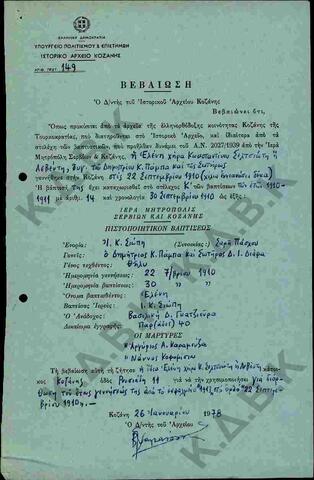 ΕΛΛΗΝΙΚΗ ΔΗΜΟΚΡΑΤΙΑ
ΥΠΟΥΡΓΕΙΟ ΠΟΛΙΤΙΣΜΟΥ & ΕΠΙΣΤΗΜΩΝ
ΙΣΤΟΡΙΚΟ ΑΡΧΕΙΟ ΚΟΖΑΝΗΣ
ΑΡΙΘ. ΠΡΩΤ. 149
ΒΕΒΑΙΩΣΗ
Ὁ Δ/ντής τοῦ Ἱστορικοῦ Ἀρχείου Κοζάνης
Βεβαιώνει ὅτι,
Ὅπως προκύπτει ἀπό τά ἀρχεῖα τῆς ἑλληνορθόδοξης κοινότητας Κοζάνης τῆς
Τουρκοκρατίας, πού διατηροῦνται στό Ἱστορικό Ἀρχεῖο, καί ἰδιαίτερα ἀπό τά
στελέχη τῶν βαπτιστικῶν, πού προῆλθαν δυνάμει τοῦ Α.Ν. 2027/1939 ἀπό τήν Ἱερά
Μητρόπολη Σερβίων & Κοζάνης, ἡ Ἑλένη χήρα Κωνσταντίνου
Λεβέντη, θυγ. τοῦ Δημητρίου Κ. Πάμπα καί τῆς Σωτήρως
γεννήθηκε στήν Κοζάνη στίς 22 Σεπτεμβρίου 1910 (χίλια ἐννιακόσια δέκα)
Ἡ βάπτισή της ἔχει καταχωρισθεῖ στό στέλεχος Κ΄ τῶν βαπτίσεων τῶν ἐτῶν 1910-
1911 μέ ἀριθμ. 14 καί χρονολογία 30 Σεπτεμβρίου 1910 ὡς ἑξῆς:
ΙΕΡΑ ΜΗΤΡΟΠΟΛΙΣ
ΣΕΡΒΙΩΝ ΚΑΙ ΚΟΖΑΝΗΣ
ΠΙΣΤΟΠΟΙΗΤΙΚΟΝ ΒΑΠΤΙΣΕΩΣ
Ἐνορία: Ἰ. Κ. Σιώπη (Συνοικία: Σορᾶ Πάσχου
Γονεῖς: ὁ Δημήτριος Κ. Πάμπα καί Σωτήρος Δ. Ι. Διάφα
Γένος τεχθέντος: Θῆλυ
Ἡμερομηνία γεννήσεως: 22 7/βρίου 1910
Ἡμερομηνία βαπτίσεως: 30 » »
Ὄνομα βαπτισθέντος: Ἑλένη
Ἱερεύς: Ι. Κ. Σιώπη
Ὁ Ἀνάδοχος: Βασιλική Δ. Γκατζιούρα
Δικαίωμα ἐγγραφῆς: 40
ΟΙ ΜΑΡΤΥΡΕΣ
Ἀργύριος Α. Καραμπίζα
Νάννος
Τή βεβαίωση αὐτή τή ζήτησε ἡ ἴδια Ἑλένη χήρα Κ. Λεβέντη κάτοι-
κος Κοζάνης ὁδός 11 γιά νά τήν χρησιμοποιήσει γιά διόρ-
θωση τοῦ ἔτους γεννήσεώς της ἀπό τό 1912 στό ὀρθό 22 Σεπτεμ-
βρίου 1910.
Κοζάνη 26 Ἰανουαρίου 1978
Ὁ Δ/ντής τοῦ Ἀρχείου
Κ.Δ.Β.Κ